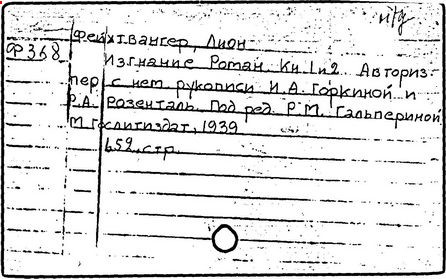 и/д
Фейхтвангер, Лион
Ф368
Изгнание Роман. Кн 1 и 2. Авториз.
пер. с нем. рукописи И.А. Горкиной и
Р.А. Розенталь. Под ред. Р.М. Гальпериной
М Гослитиздат, 1939
652. стр.